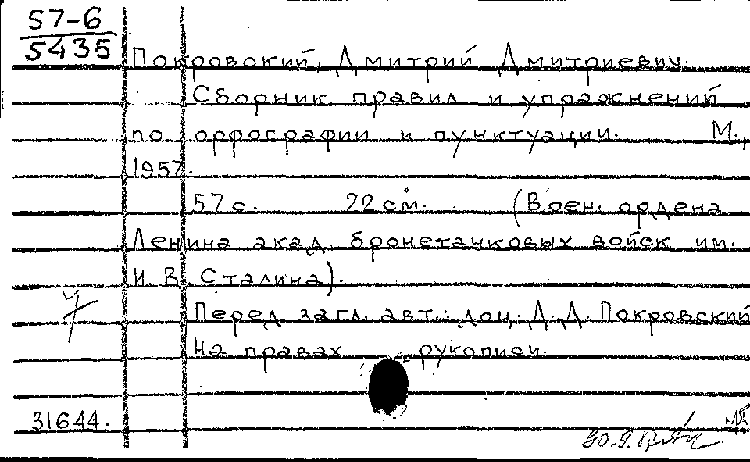 57-6
5435
Покровский, Дмитрий Дмитриевич.
Сборник правил и упражнений
по орфографии и пунктуации. М.,
1957.
57 с. 22 см. (Воен. ордена
Ленина акад. бронетанковых войск им.
И. В. Сталина).
Перед загл. авт.: доц. Д. Д. Покровский
На правах рукописи.
31644.